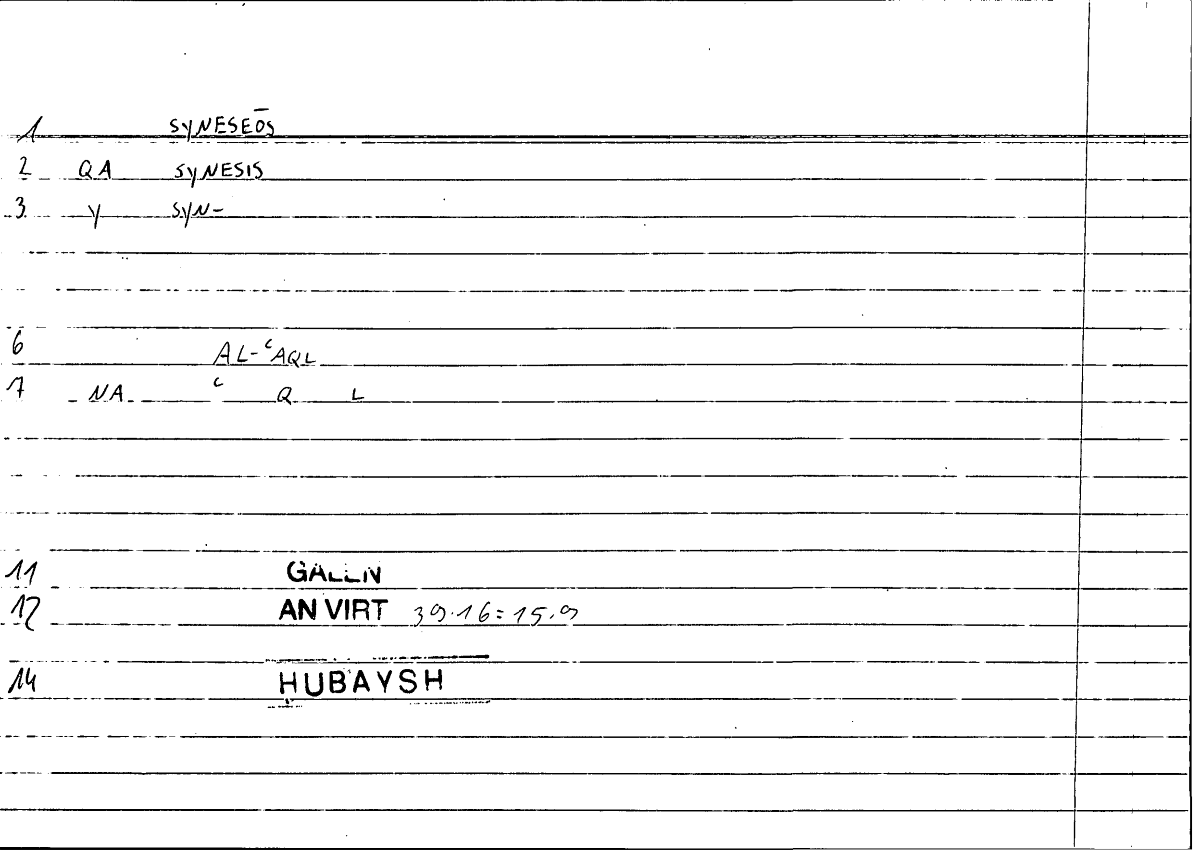 1 SYNESEŌS
2 QA SYNESIS
3 Y SYN-
6 AL-ʿAQL
7 NA ʿ Q L
11 GALEN
12 AN VIRT 39.16 = 15.9
14 ḤUBAYSH